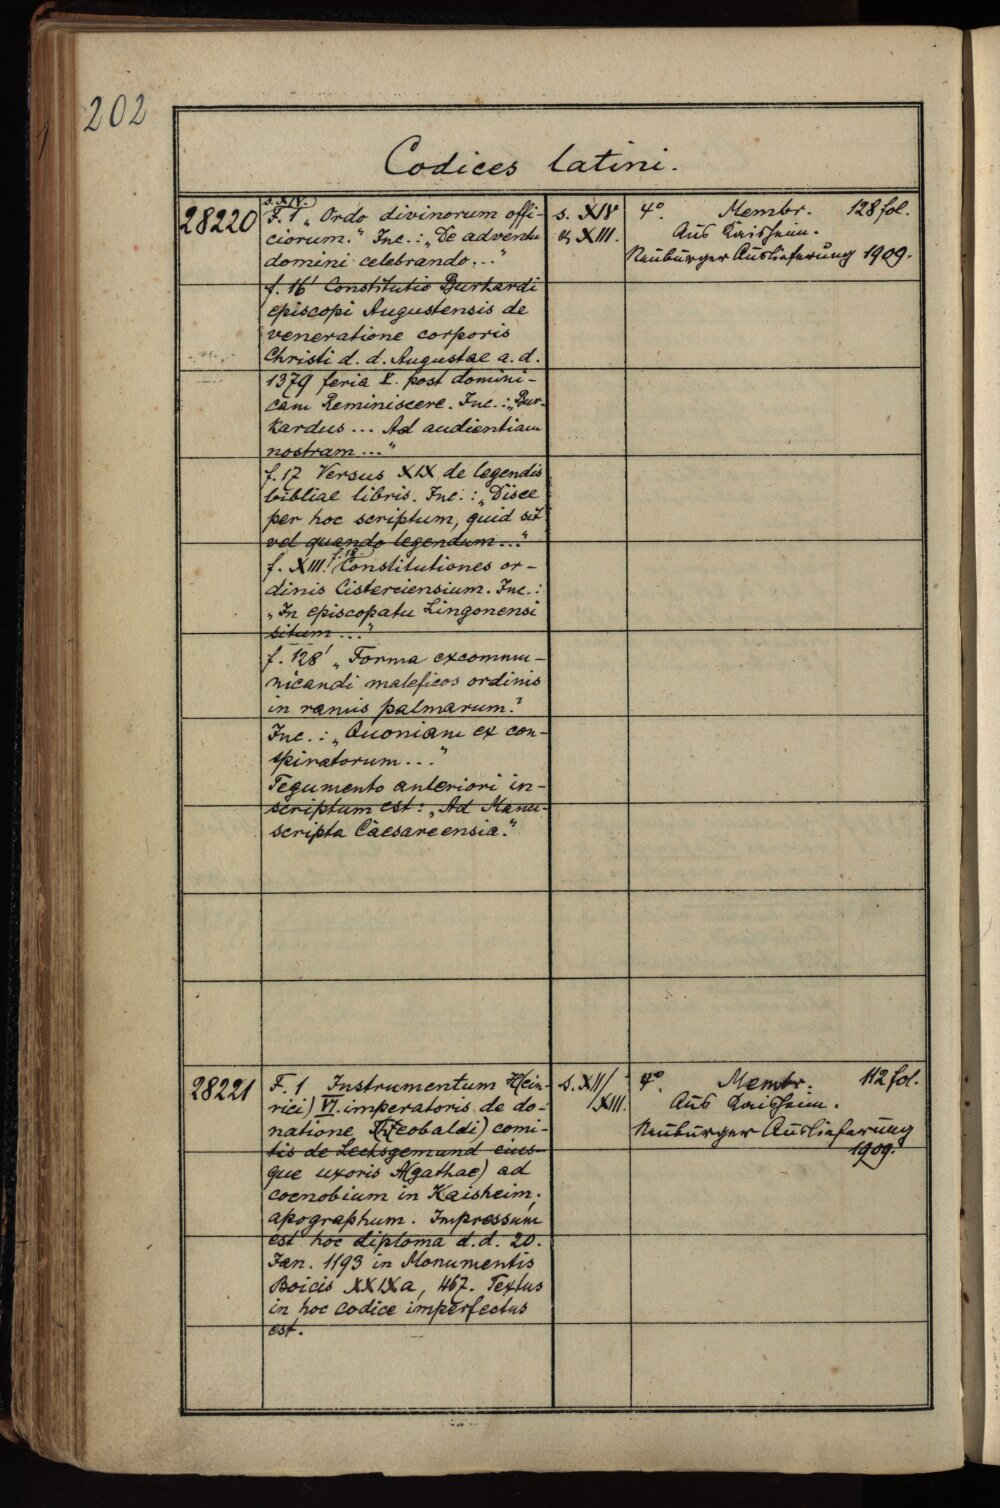 202
Codices latini.
28220
s. XIV.
F. 1 „Ordo divinorum offi-
ciorum." Inc.: „De adventu
domini celebrando..."
f. 16' Constitutio Burkardi
episcopi Augustensis de
veneratione corporis
Christi d. d. Augustae a. d.
1379 feria V. post domini-
cam Reminiscere. Inc.: „Bur-
kardus... Ad audientiam
nostram..."
f. 17 Versus XIX de legendis
bibliae libris. Inc.: „Disce
per hoc scriptum, quid sit
vel quando legendum..."
f. 18
s. XIII. Constitutiones or-
dinis Cisterciensium. Inc.:
„In episcopatu Lingonensi
situm..."
f. 128' „Forma excommu-
nicandi maleficos ordinis
in ramis palmarum."
Inc.: „Quoniam ex con-
spiratorum..."
Tegumento anteriori in-
scriptum est: „Ad Manu-
scripta Caesareensia."
s. XIV
& XIII.
4º. Membr. 128 fol.
Aus Kaisheim.
Neuburger Auslieferung 1909.
28221
F. 1 Instrumentum H(ein-
rici) VI. imperatoris de do-
natione Th(eobaldi) comi-
tis de Lechsgemund eius-
que uxoris A(gathae) ad
coenobium in Kaisheim,
apographum. Impressum
est hoc diploma d. d. 20.
Jan. 1193 in Monumentis
Boicis XXIXa, 467. Textus
in hoc codice imperfectus
est.
s. XII/
XIII.
4º. Membr. 112 fol.
Aus Kaisheim.
Neuburger Auslieferung
1909.